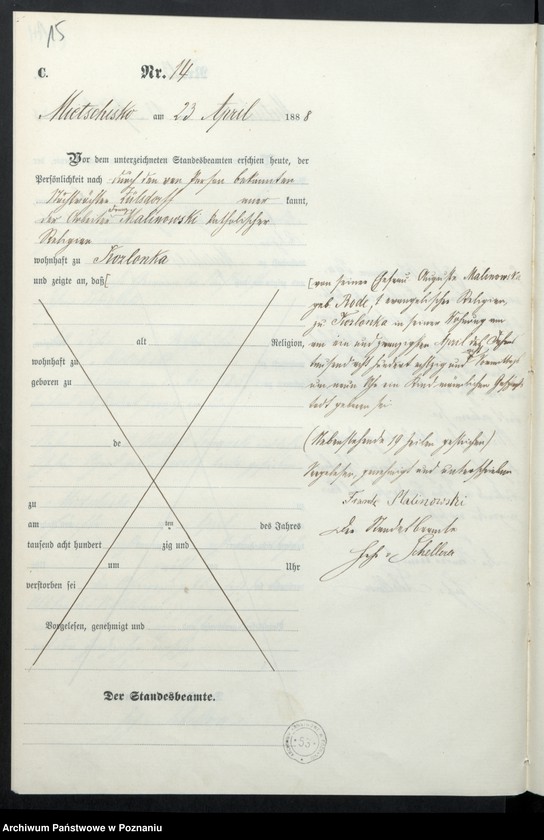 15
C.
Nr. 14
Mietschisko am 23 April 1888
Vor dem unterzeichneten Standesbeamten erschien heute, der
Persönlichkeit nach durch den von Person bekannten
Nachtwächter kannt,
der Arbeiter Franz Malinowski katholischer
Religion
wohnhaft zu Kozlonka
und zeigte an, daß [
alt Religion,
wohnhaft zu
geboren zu
de
zu
am im des Jahres
tausend acht hundert zig und
um Uhr
verstorben sei
Vorgelesen, genehmigt und
Der Standesbeamte.
[von seiner Ehefrau Auguste Malinowska
geb. Rode, evangelischer Religion,
zu Kozlonka in seiner Wohnung am
ein und zwanzigsten April des Jahres
tausend acht hundert achtzig und acht Vormittags
um neun Uhr ein Kind männlichen Geschlechts
todt geboren sei
(Nebenstehende 19 Zeilen gestrichen)
Vorgelesen, genehmigt und unterschrieben
Frank Malinowski
Der Standesbeamte
53
Archiwum Państwowe w Poznaniu